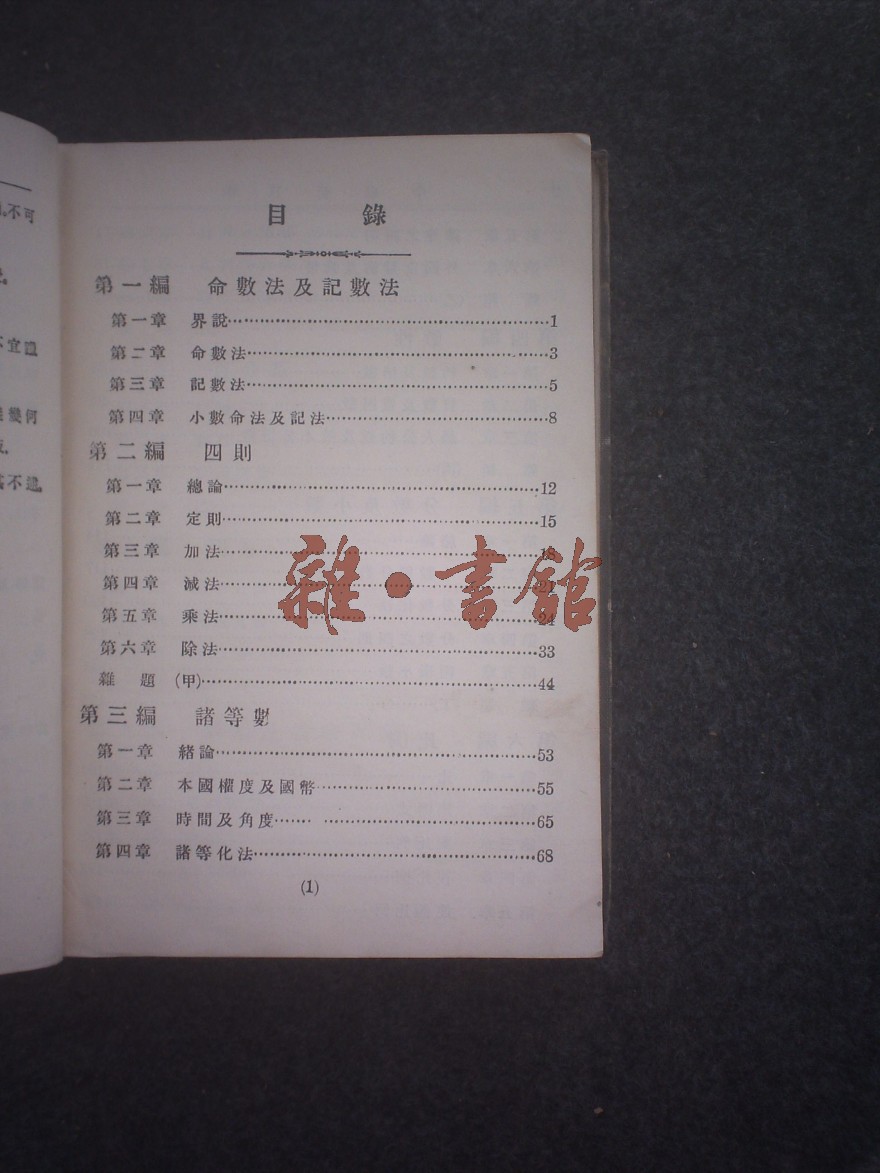 不可
不宜
幾何
不
目 錄
第一編 命數法及記數法
第一章 界說……1
第二章 命數法……3
第三章 記數法……5
第四章 小數命法及記法……8
第二編 四則
第一章 總論……12
第二章 定則……15
第三章 加法……18
第四章 減法……
第五章 乘法……24
第六章 除法……33
雜 題 (甲)……44
第三編 諸等數
第一章 緒論……53
第二章 本國權度及國幣……55
第三章 時間及角度……65
第四章 諸等化法……68
(1)
雜·書館